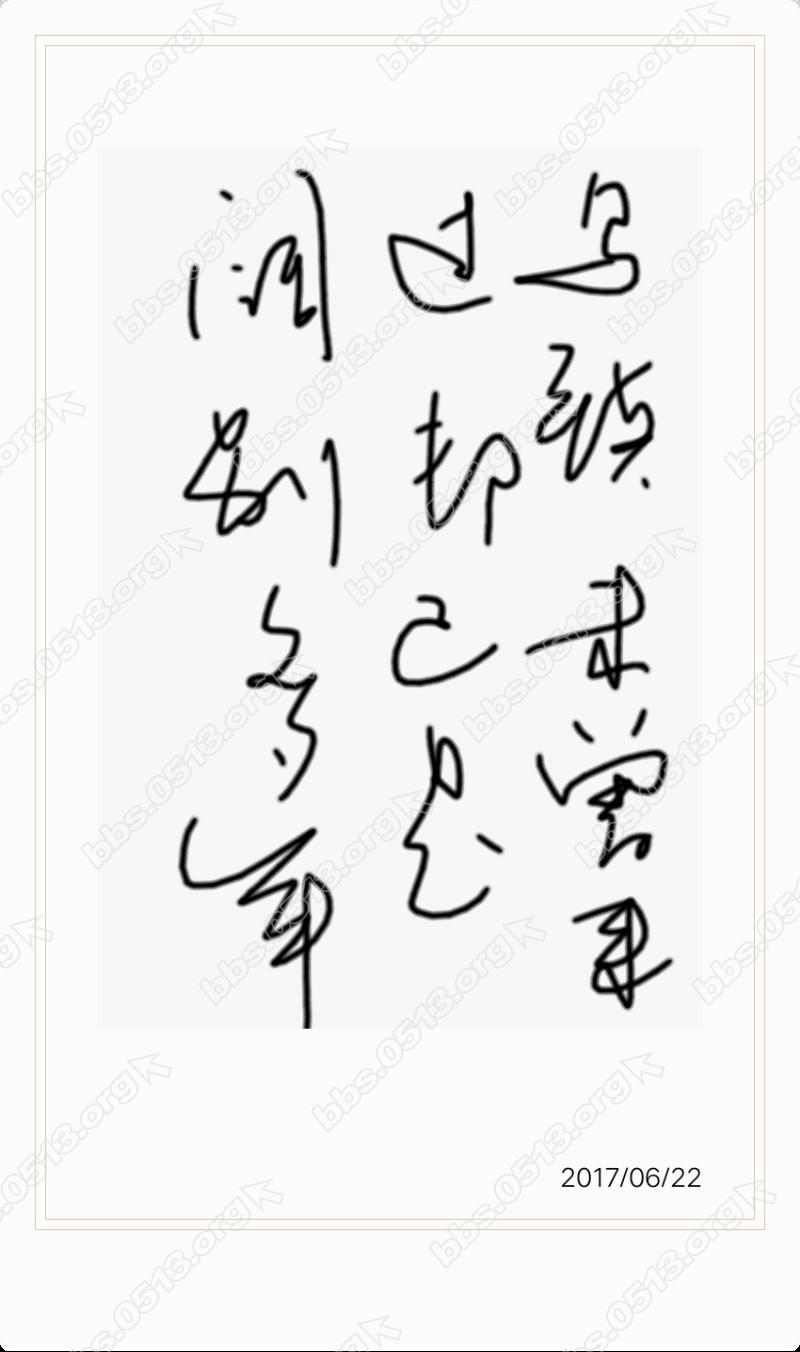 乌镇未曾来
过却已是
阔别多年
2017/06/22
bbs.0513.org